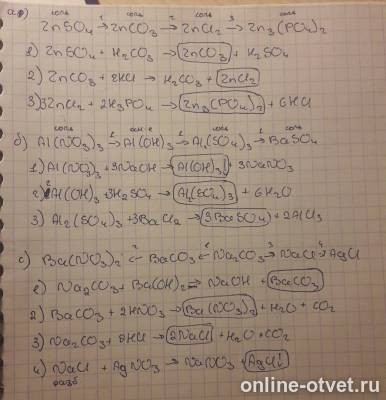 а) соль соль соль соль
ZnSO4 →1 ZnCO3 →2 ZnCl2 →3 Zn3(PO4)2
1) ZnSO4 + H2CO3 → ZnCO3 + H2SO4
2) ZnCO3 + 2HCl → H2CO3 + ZnCl2
3) 3ZnCl2 + 2H3PO4 → Zn3(PO4)2 + 6HCl
соль осн-е соль соль
б) Al(NO3)3 →1 Al(OH)3 →2 Al2(SO4)3 → BaSO4
1) Al(NO3)3 + 3NaOH → Al(OH)3↓ 3NaNO3
2) 2Al(OH)3 + 3H2SO4 → Al2(SO4)3 + 6H2O
3) Al2(SO4)3 + 3BaCl2 → 3BaSO4 + 2AlCl3
с) Ba(NO3)2 ←2 BaCO3 ←1 Na2CO3 →3 NaCl →4 AgCl
1) Na2CO3 + Ba(OH)2 = NaOH + BaCO3
2) BaCO3 + 2HNO3 → Ba(NO3)2 + H2O + CO2
3) Na2CO3 + 2HCl → 2NaCl + H2O + CO2
4) NaCl + AgNO3 → NaNO3 + AgCl↓
разб
online-otvet.ru